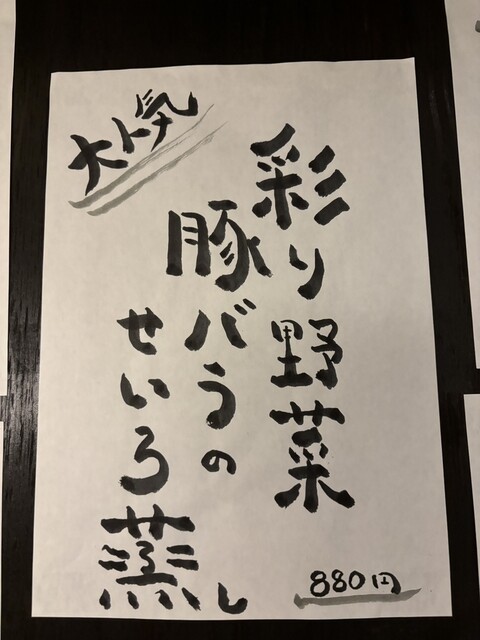 大人気
彩り野菜
豚バラの
せいろ蒸し
880円